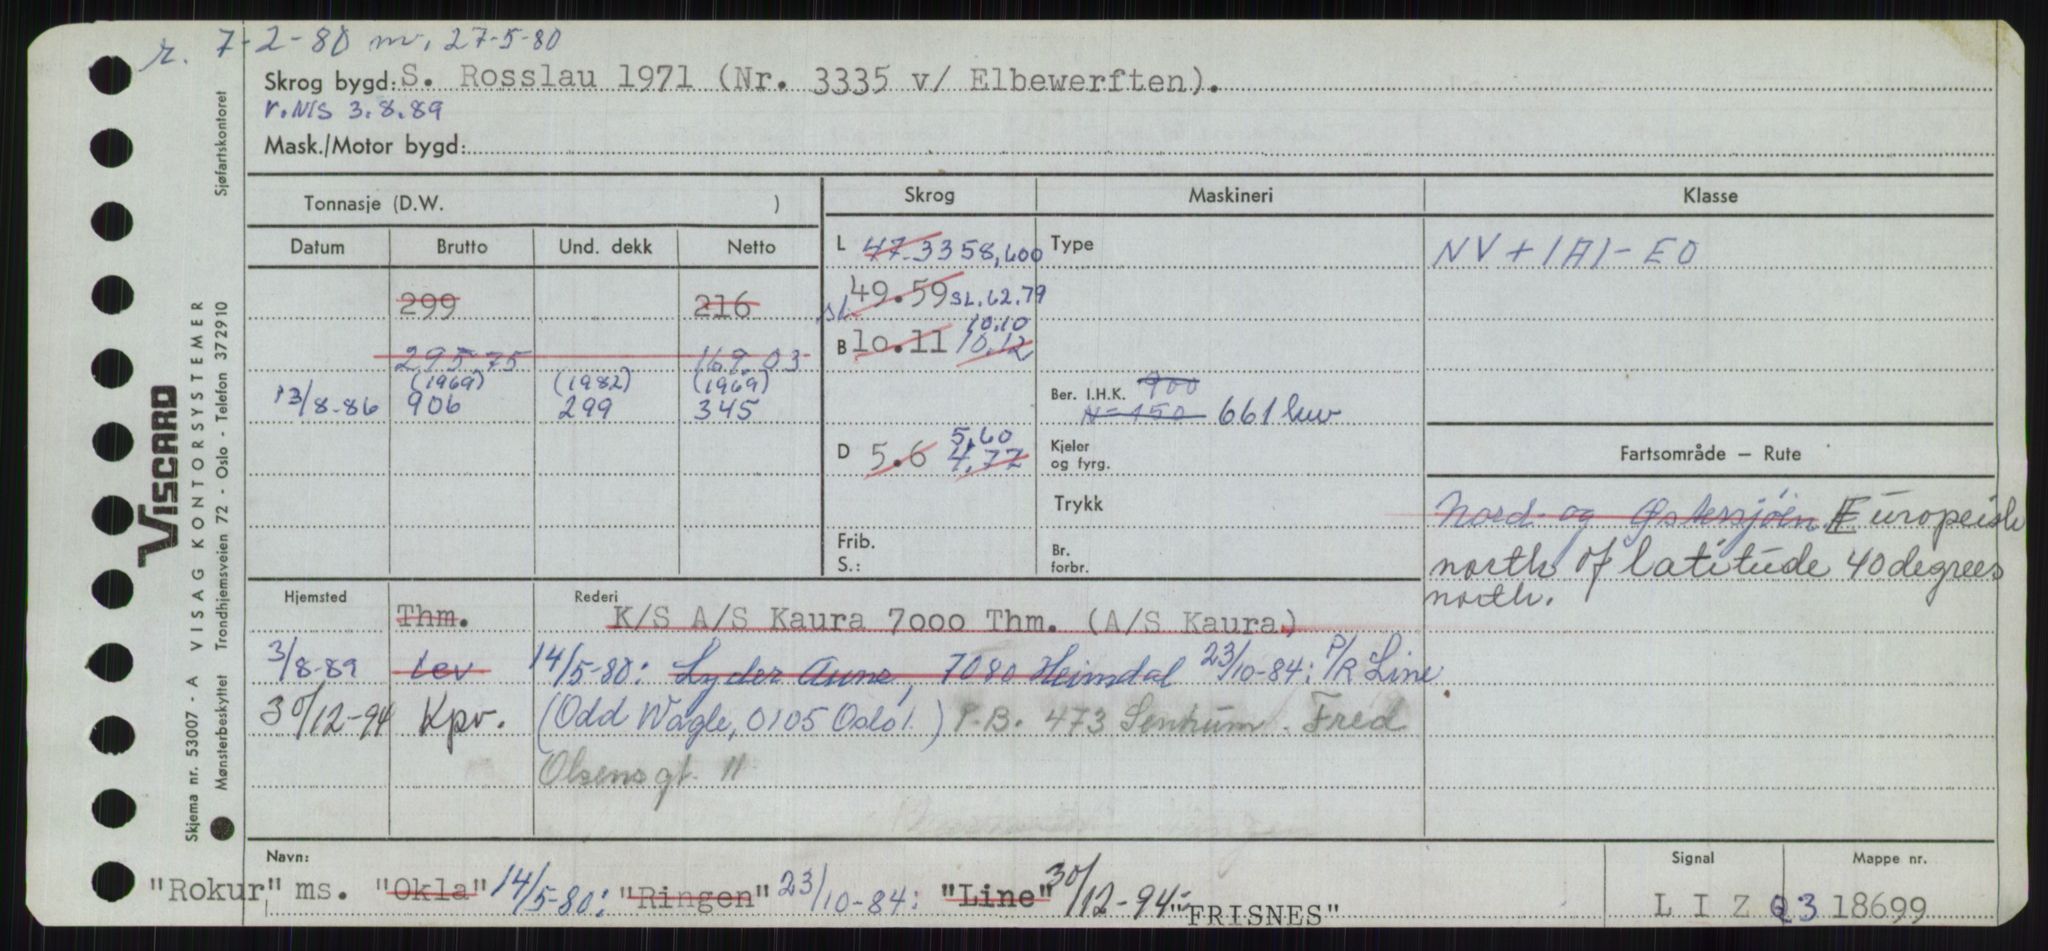 r. 7-2-80 m. 27-5-80
Skrog bygd: S. Rosslau 1971 (Nr. 3335 v/ Elbewerften).
r.NIS 3.8.89
Mask./Motor bygd:
Sjøfartskontoret
VISCARD
VISAG KONTORSYSTEMER
Skjema nr. 53007 - A
Mønsterbeskyttet Trondhjemsveien 72 - Oslo - Telefon 372910
Tonnasje (D.W. )
Skrog Maskineri Klasse
Datum Brutto Und. dekk Netto
L 47.33 58,600 Type NV + 1A1 - EO
299 216 49.59 SL. 62.79
10.10
B 10.11 10.12
295.75 169.03
(1969) (1982) (1969)
13/8-86 906 299 345
Ber. I.H.K. 900
N=150 661 kw
5,60
D 5.6 4.77 Kjeler og fyrg.
Fartsområde — Rute
Trykk
Nord- og Østersjøen. Europeisk
north of latitude 40 degrees
north.
Frib.
S.:
Br. forbr.
Hjemsted Rederi
Thm. K/S A/S Kaura 7000 Thm. (A/S Kaura)
3/8-89 Lev 14/5-80: Lyder Aune, 7080 Heimdal 23/10-84: P/R Line
30/12-94 Kpv. (Odd Wagle, 0105 Oslo 1.) P.B. 473 Sentrum. Fred
Olsensgt. 11
Navn: Signal Mappe nr.
"Rokur" ms. "Okla" 14/5-80: "Ringen" 23/10-84: "Line" 30/12-94: "FRISNES" L I Z Q 3 18699